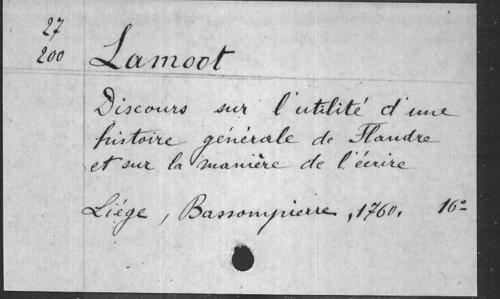 27
200
Lamoot
Discours sur l'utilité d'une
histoire générale de Flandre
et sur la manière de l'écrire
Liége, Bassompierre, 1760. 16°